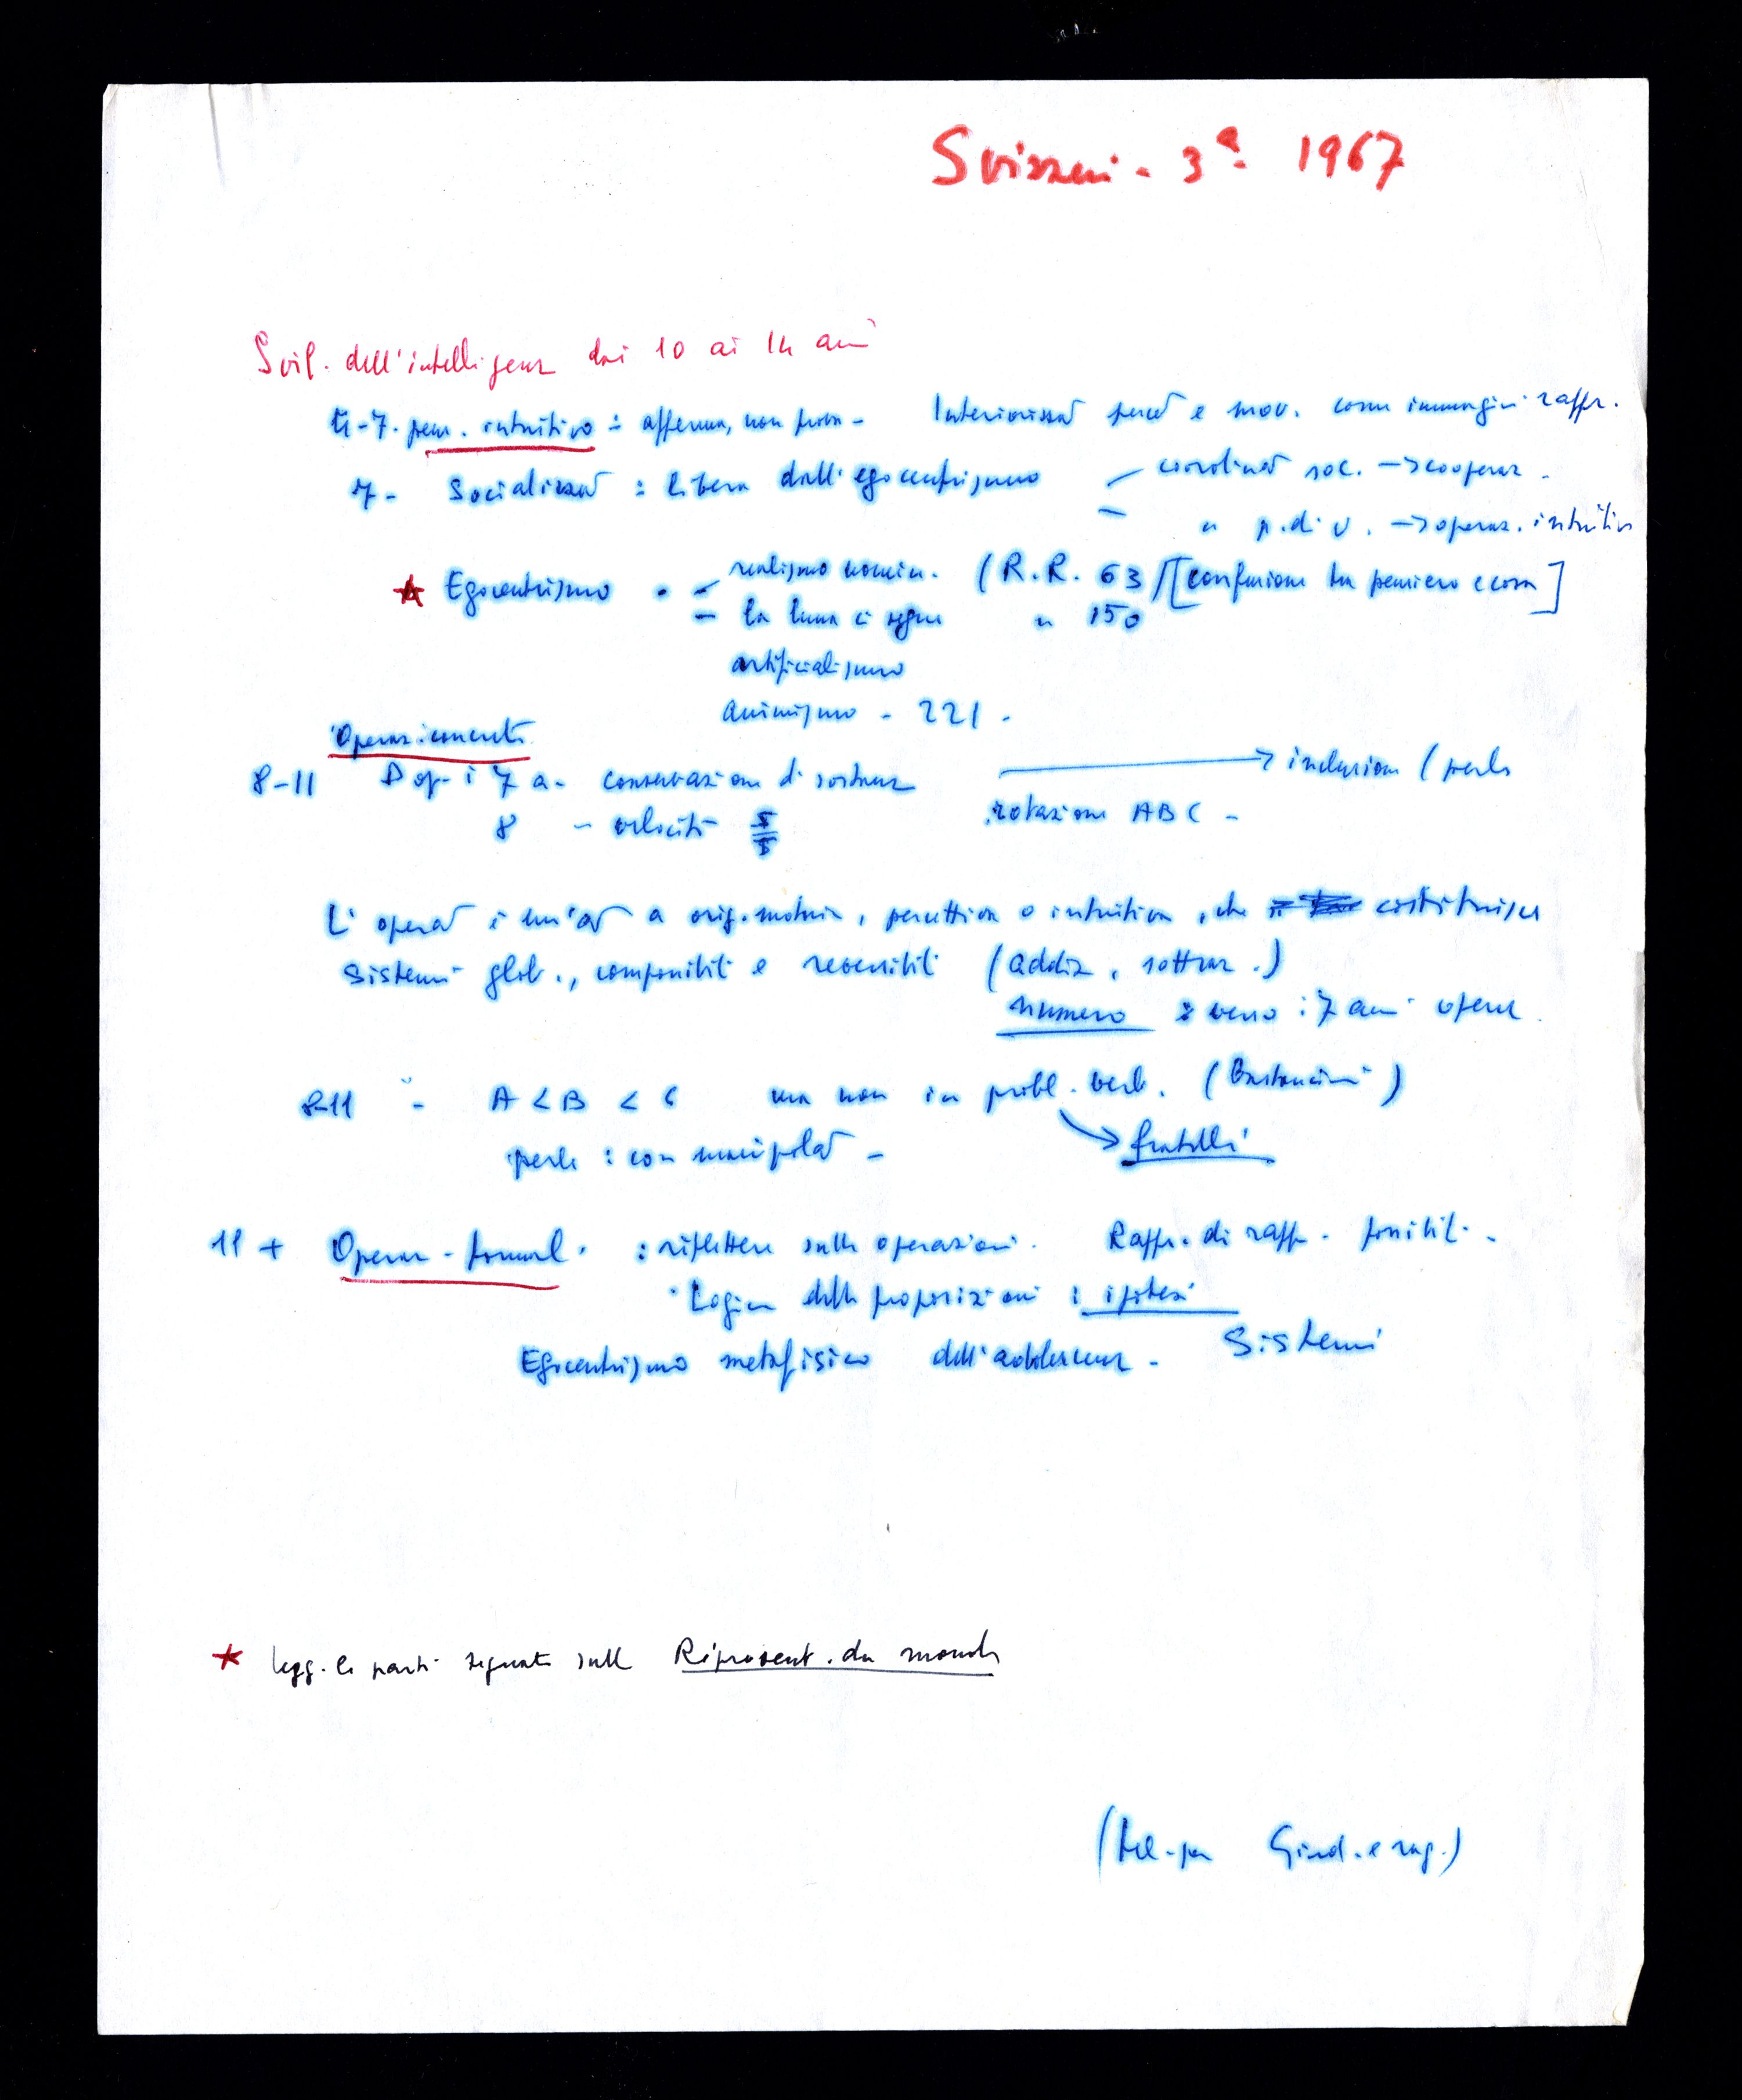 Svizzeri - 3ª 1967
Svil. dell'intelligenz dai 10 ai 14 anni
4-7. pens. intuitivo : afferma, non prova - Interiorizzaz perce e mov. come immagini rappr.
7 - Socializzaz : libera dall'egocentrismo - coordinaz soc. → cooperaz -
- " p. di v. → operaz. intuitiv
★ Egocentrismo . - realismo nomin. (R.R. 63 / [confusione tra pensiero e cosa]
- la luna ci segue " 150
artificialismo
animismo - 221 -
Operaz. concrete
8-11 Dop. i 7 a - conservazione di sostanz → inclusione (perle
8 - velocità rotazione ABC -
L'operaz è un'az a orig. motoria, percettiva o intuitiva, che costituisce
sistemi glob., componibili e reversibili (addiz, sottraz.)
numero vero : 7 anni operaz.
8-11 - A < B < C ma non in probl. verb. (Bastoncini)
→ fratelli
perle : con manipolaz -
11 + Operaz - formal. : riflettere sulle operazioni. Rappr. di rappr - possibili -
Logica delle proposizioni : ipotesi
Sistemi
Egocentrismo metafisico dell'adolescenz -
★ legg. le parti segnate sulla Répresent. du monde
(tel. per Giud. e rag.)